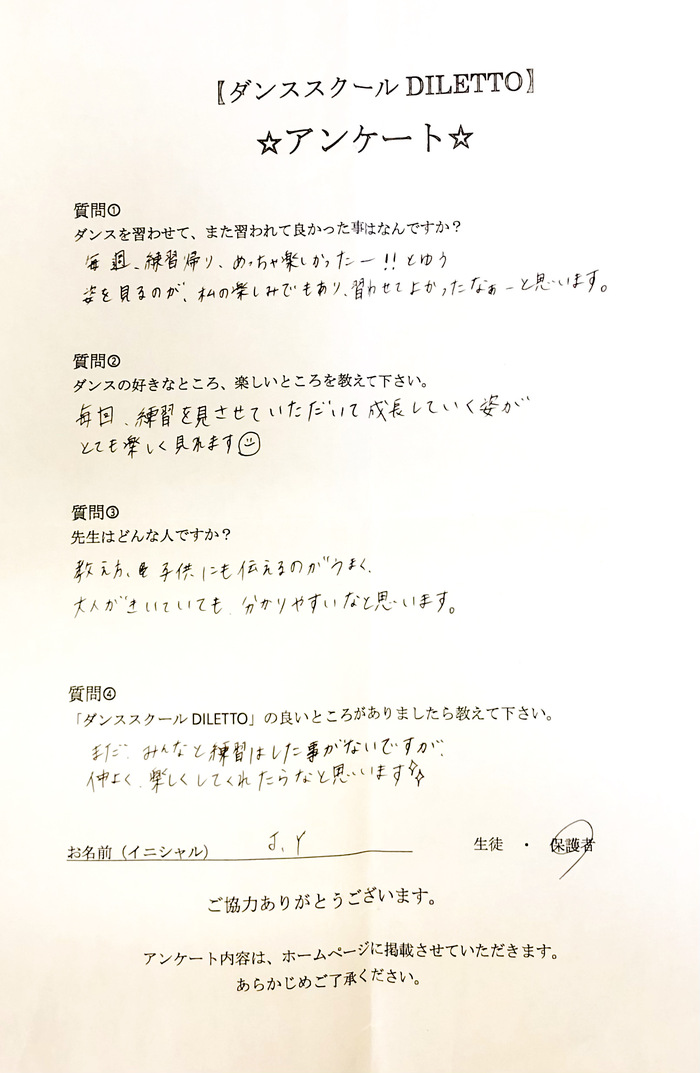 〖ダンススクール DILETTO〗
☆アンケート☆
質問①
ダンスを習わせて、また習われて良かった事はなんですか？
毎週、練習帰り、めっちゃ楽しかったー!!とゆう
姿を見るのが、私の楽しみでもあり、習わせてよかったなぁーと思います。
質問②
ダンスの好きなところ、楽しいところを教えて下さい。
毎回、練習を見させていただいて成長していく姿が
とても楽しく見れます☺
質問③
先生はどんな人ですか？
教え方、子供にも伝えるのがうまく、
大人がきいていても、分かりやすいなと思います。
質問④
「ダンススクール DILETTO」の良いところがありましたら教えて下さい。
まだ、みんなと練習はした事がないですが、
仲よく、楽しくしてくれたらなと思います✨
お名前（イニシャル） J.Y 生徒 ・ 保護者
ご協力ありがとうございます。
アンケート内容は、ホームページに掲載させていただきます。
あらかじめご了承ください。